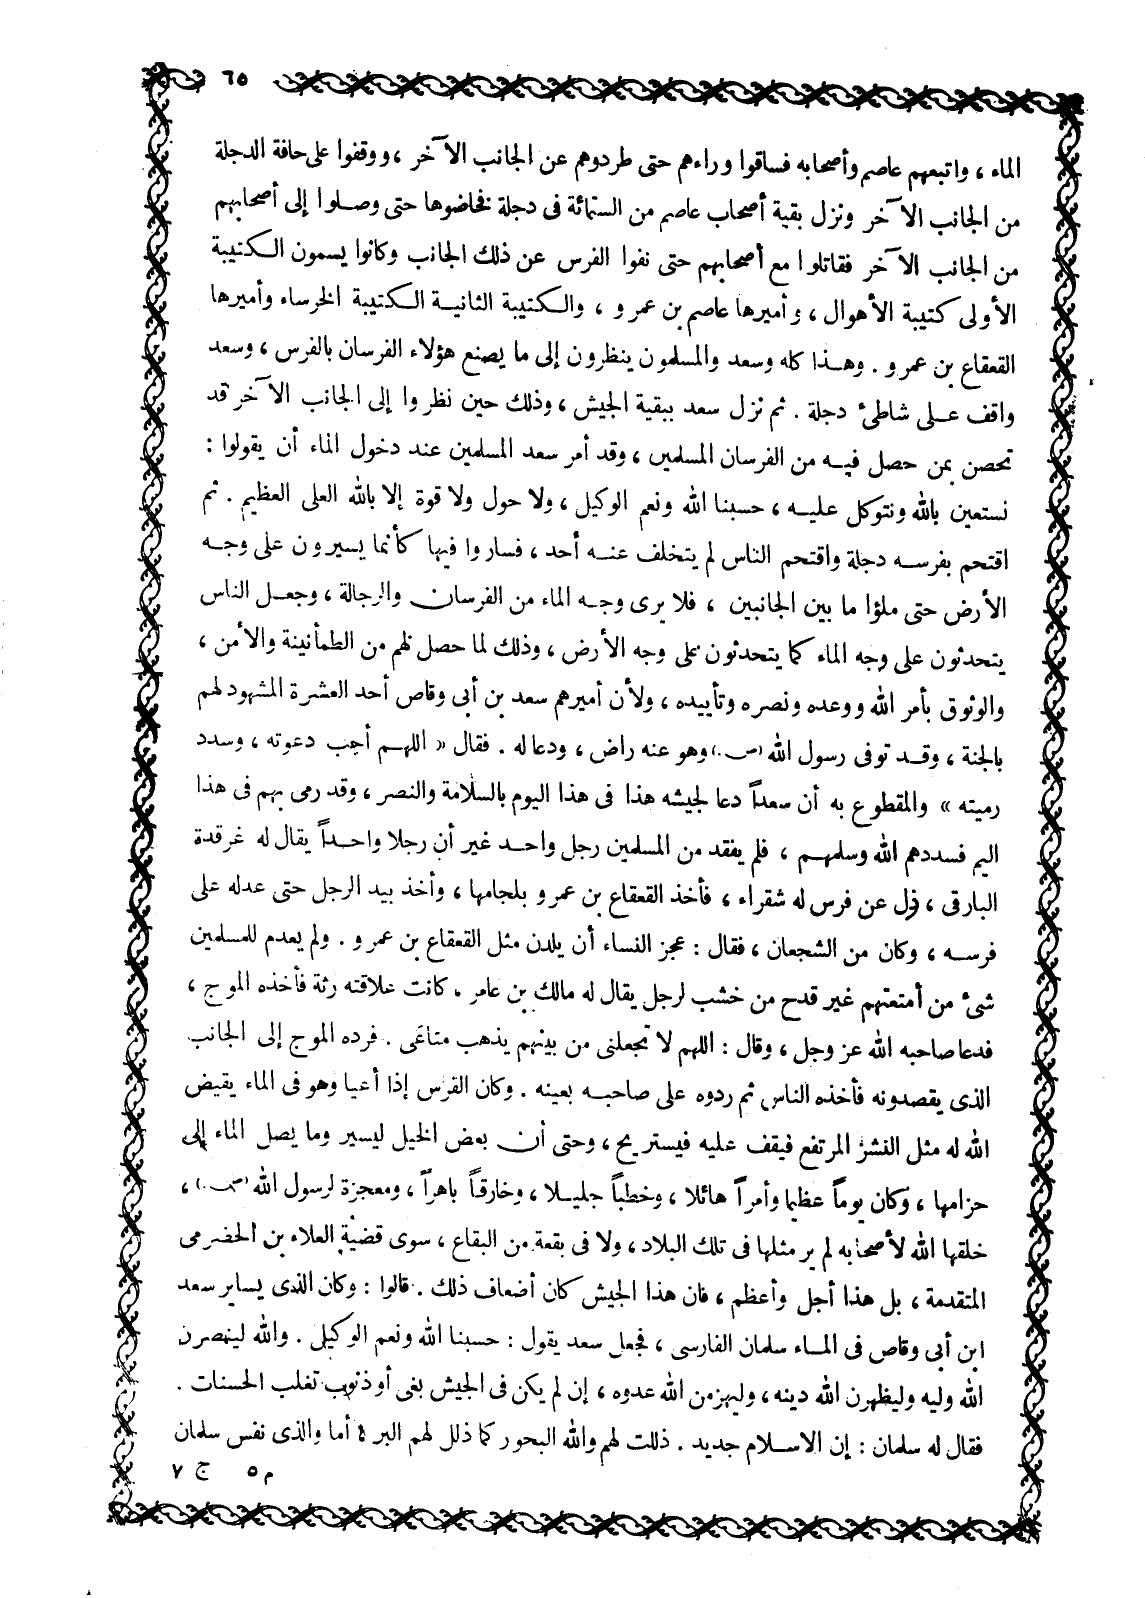 ٦٥
الماء ، واتبعهم عاصم وأصحابه فساقوا وراءهم حتى طردوهم عن الجانب الآخر ، ووقفوا على حافة الدجلة
من الجانب الآخر ونزل بقية أصحاب عاصم من الستمائة فى دجلة فخاضوها حتى وصلوا إلى أصحابهم
من الجانب الآخر فقاتلوا مع أصحابهم حتى نفوا الفرس عن ذلك الجانب وكانوا يسمون الكتيبة
الأولى كتيبة الأهوال ، وأميرها عاصم بن عمرو ، والكتيبة الثانية الكتيبة الخرساء وأميرها
القعقاع بن عمرو . وهذا كله وسعد والمسلمون ينظرون إلى ما يصنع هؤلاء الفرسان بالفرس ، وسعد
واقف على شاطئ دجلة . ثم نزل سعد ببقية الجيش ، وذلك حين نظروا إلى الجانب الآخر قد
تحصن بمن حصل فيه من الفرسان المسلمين ، وقد أمر سعد المسلمين عند دخول الماء أن يقولوا :
نستعين بالله ونتوكل عليه ، حسبنا الله ونعم الوكيل ، ولا حول ولا قوة إلا بالله العلى العظيم . ثم
اقتحم بفرسه دجلة واقتحم الناس لم يتخلف عنه أحد ، فساروا فيها كأنما يسيرون على وجه
الأرض حتى ملؤا ما بين الجانبين ، فلا يرى وجه الماء من الفرسان والرجالة ، وجعل الناس
يتحدثون على وجه الماء كما يتحدثون على وجه الأرض ، وذلك لما حصل لهم من الطمأنينة والأمن ،
والوثوق بأمر الله ووعده ونصره وتأييده ، ولأن أميرهم سعد بن أبى وقاص أحد العشرة المشهود لهم
بالجنة ، وقد توفى رسول الله (ص.) وهو عنه راض ، ودعا له . فقال « اللهم أجب دعوته ، وسدد
رميته » والمقطوع به أن سعداً دعا لجيشه هذا فى هذا اليوم بالسلامة والنصر ، وقد رمى بهم فى هذا
اليم فسددهم الله وسلمهم ، فلم يفقد من المسلمين رجل واحد غير أن رجلا واحداً يقال له غرقدة
البارقى ، زل عن فرس له شقراء ، فأخذ القعقاع بن عمرو بلجامها ، وأخذ بيد الرجل حتى عدله على
فرسه ، وكان من الشجعان ، فقال : عجز النساء أن يلدن مثل القعقاع بن عمرو . ولم يعدم للمسلمين
شئ من أمتعتهم غير قدح من خشب لرجل يقال له مالك بن عامر . كانت علاقته رثة فأخذه الموج ،
فدعا صاحبه الله عز وجل ، وقال : اللهم لا تجعلنى من بينهم يذهب متاعى . فرده الموج إلى الجانب
الذى يقصدونه فأخذه الناس ثم ردوه على صاحبه بعينه . وكان الفرس إذا أعيا وهو فى الماء يقيض
الله له مثل النشز المرتفع فيقف عليه فيستريح ، وحتى أن بعض الخيل ليسير وما يصل الماء إلى
حزامها ، وكان يوماً عظيما وأمراً هائلا ، وخطباً جليلا ، وخارقاً باهراً ، ومعجزة لرسول الله (ص.) ،
خلقها الله لأصحابه لم ير مثلها فى تلك البلاد ، ولا فى بقعة من البقاع ، سوى قضية العلاء بن الحضرمى
المتقدمة ، بل هذا أجل وأعظم ، فان هذا الجيش كان أضعاف ذلك . قالوا : وكان الذى يساير سعد
ابن أبى وقاص فى الماء سلمان الفارسى ، فجعل سعد يقول : حسبنا الله ونعم الوكيل . والله لينصرن
الله وليه وليظهرن الله دينه ، وليهزمن الله عدوه ، إن لم يكن فى الجيش بغى أو ذنوب تغلب الحسنات .
فقال له سلمان : إن الاسلام جديد . ذللت لهم والله البحور كما ذلل لهم البر ، أما والذى نفس سلمان
م ٥ ج ٧